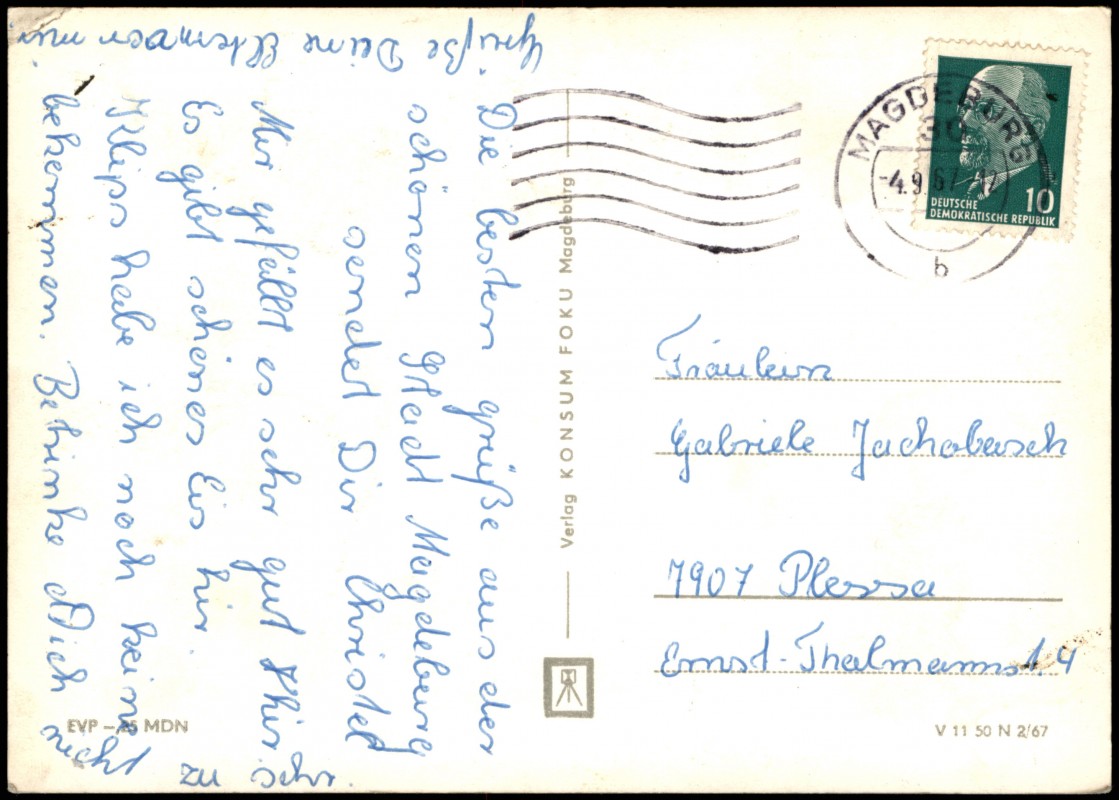 Die besten grüße aus der
schönen Stadt Magdeburg
sendet Dir Christel
Mir gefällt es sehr gut hir.
Es gibt schönes Eis hir.
Klips habe ich noch keine
bekommen. Betrinke Dich nicht
zu sehr.
Grüße Deine Eltern von mir.
Verlag KONSUM FOKU Magdeburg
MAGDEBURG
30
-4.9.67-17
b
10
DEUTSCHE
DEMOKRATISCHE REPUBLIK
Fräulein
Gabriele Jachobasch
7907 Plessa
Ernst-Thalmanns1.4
EVP –,25 MDN
V 11 50 N 2/67